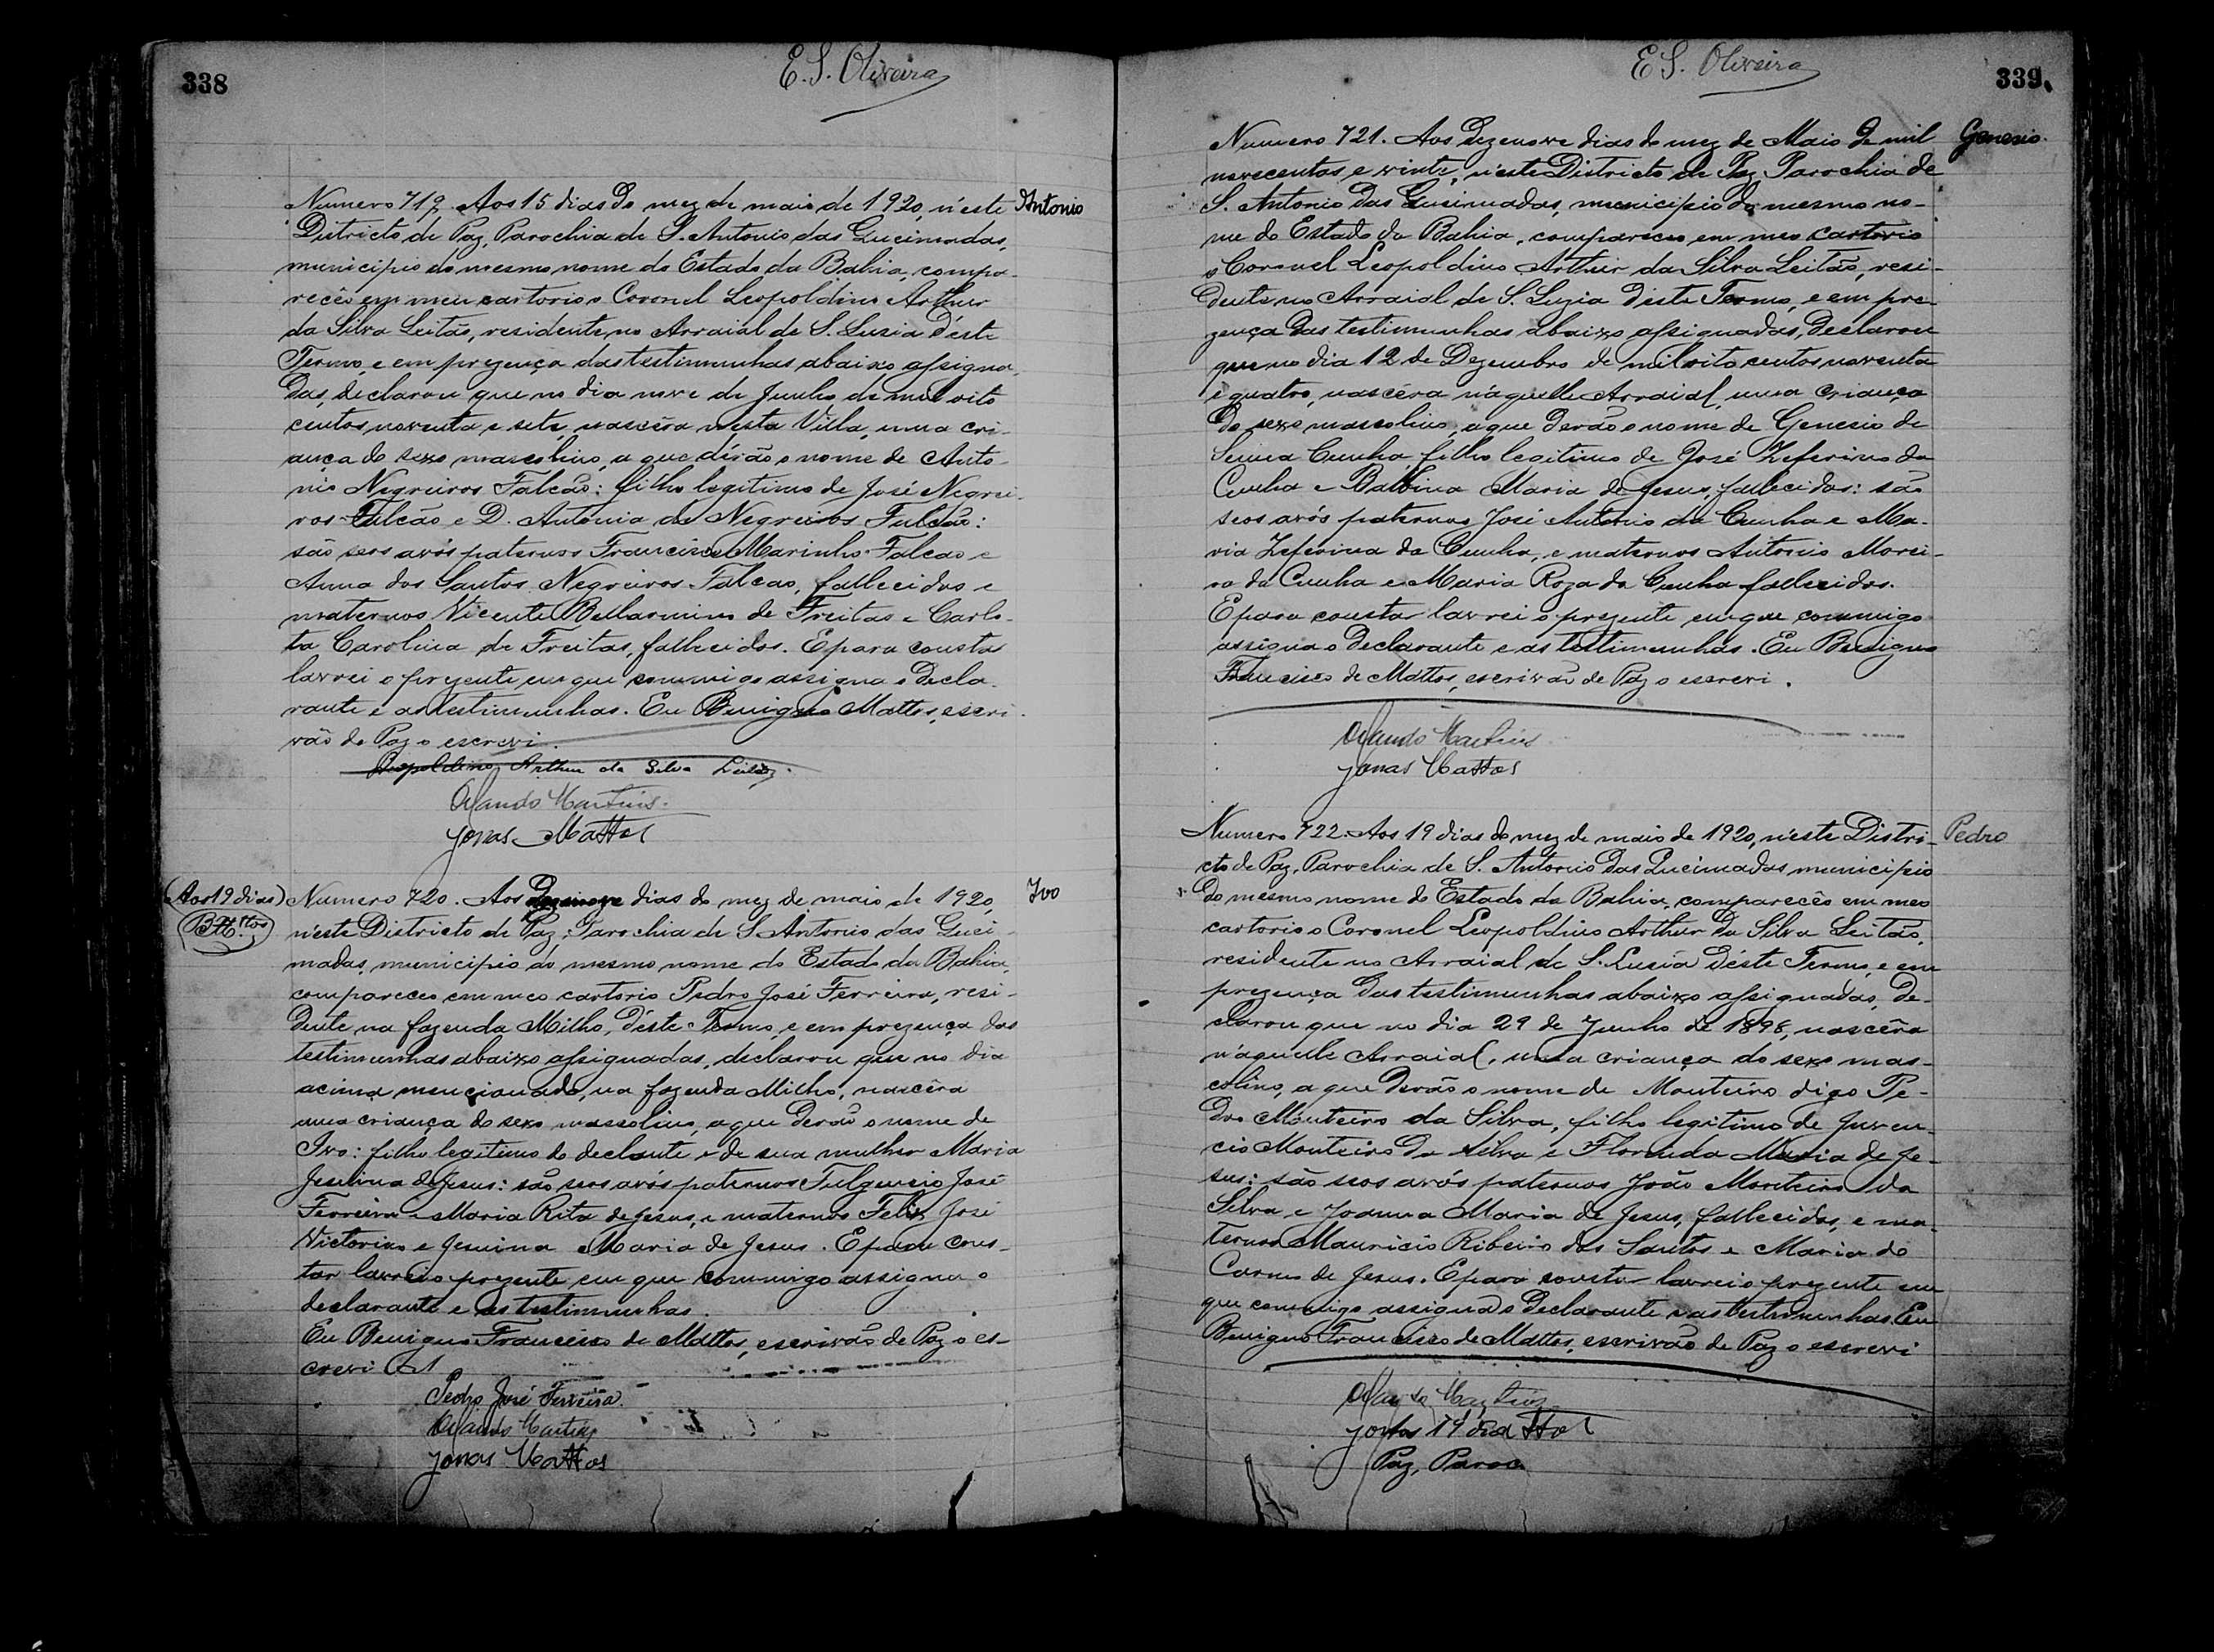 338
E. S. Oliveira
Numero 719. Aos 15 dias do mez de maio de 1920, n'este
Antonio
Districto de Paz, Parochia de S. Antonio das Queimadas,
municipio do mesmo nome do Estado da Bahia, compa-
recêo em meu cartorio o Coronel Leopoldino Arthur
da Silva Leitão, residente no Arraial de S. Lusia d'este
Termo, e em prezença das testimunhas abaixo assigna-
das, declarou que no dia nove de Junho de mil oito
centos noventa e sete, nascêra nesta Villa, uma cri-
ança do sexo mascolino, a que dérão o nome de Anto-
nio Negreiros Falcão: filho legitimo de José Negrei-
ros Falcão e D. Antonia de Negreiros Falcão:
são seos avós paternos Francisco Marinho Falcao e
Anna dos Santos Negreiros Falcao, fallecidos e
maternos Vicente Bellarmino de Freitas e Carlo-
ta Carolina de Freitas, fallecidos. E para constar
lavrei o prezente em que commigo assigna o Decla-
rante e as testimunhas. Eu Benigno Mattos, escri-
vão de Paz o escrevi.
Leopoldino Arthur da Silva Leitão.
Orlando Martins.
Jonas Mattos
(Aos 19 dias)
B. M.ttos
Numero 720. Aos Dezenove dias do mez de maio de 1920,
Ivo
n'este Districto de Paz, Parochia de S. Antonio das Quei-
madas, municipio do mesmo nome do Estado da Bahia,
compareceo em meo cartorio Pedro José Ferreira, resi-
dente na fazenda Milho, d'éste Termo, e em prezença das
testimunhas abaixo assignadas, declarou que no dia
acima mencionado, na fazenda Milho, nascêra
uma criança do sexo mascolino, a que derão o nome de
Ivo: filho legitimo do declante e de sua mulher Maria
Jesuina de Jesus: são seos avós paternos Fulgencio José
Ferreira e Maria Rita de Jesus, e maternos Felix José
Victorino e Jesuina Maria de Jesus. E para cons-
tar lavrei o prezente em que commigo assigna o
declarante e as testimunhas.
Eu Benigno Francisco de Mattos, escrivão de Paz o es-
crevi
Pedro José Ferreira.
Orlando Martins
Jonas Mattos
E S. Oliveira
339
Numero 721. Aos Dezenove dias do mez de Maio de mil
Genesio.
novecentos e vinte, n'este Districto de Paz, Parochia de
S. Antonio das Queimadas, municipio do mesmo no-
me do Estado da Bahia, compareceo em meo cartorio
o Coronel Leopoldino Arthur da Silva Leitão, resi-
dente no Arraial de S. Luzia d'este Termo, e em pre-
zença das testimunhas abaixo assignadas, Declarou
que no dia 12 de Dezembro de mil oito centos noventa
e quatro, nascêra n'aquelle Arraial, uma criança
do sexo mascolino, a que derão o nome de Genesio de
Senna Cunha, filho legitimo de José Zeferino da
Cunha e Balbina Maria de Jesus, fallecidos: são
seos avós paternos José Antonio da Cunha e Ma-
ria Zeferina da Cunha, e maternos Antonio Morei-
ra da Cunha e Maria Roza da Cunha fallecidos.
E para constar lavrei o prezente em que commigo
assigna o Declarante e as testimunhas. Eu Benigno
Francisco de Mattos, escrivão de Paz o escrevi.
Orlando Martins
Jonas Mattos
Numero 722. Aos 19 dias do mez de maio de 1920, n'este Distri-
Pedro
cto de Paz, Parochia de S. Antonio das Queimadas municipio
do mesmo nome do Estado da Bahia, comparecêo em meo
cartorio o Coronel Leopoldino Arthur da Silva Leitão,
residente no Arraial de S. Lusia d'éste Termo, e em
prezença das testimunhas abaixo assignadas, de-
clarou que no dia 29 de Junho de 1898, nascêra
n'aquelle Arraial, uma criança do sexo mas-
colino, a que derão o nome de Monteiro digo Pe-
dro Monteiro da Silva, filho legitimo de Juven-
cio Monteiro da Silva e Florinda Maria de Je-
sus: são seos avós paternos João Monteiro da
Silva e Joanna Maria de Jesus, fallecidos, e ma-
ternos Mauricio Ribeiro dos Santos e Maria do
Carmo de Jesus. E para constar lavrei o prezente em
que commigo assigna o Declarante e as testimunhas. Eu
Benigno Francisco de Mattos, escrivão de Paz o escrevi
Orlando Martins
Jonas 19 dia
Paz, Paroc